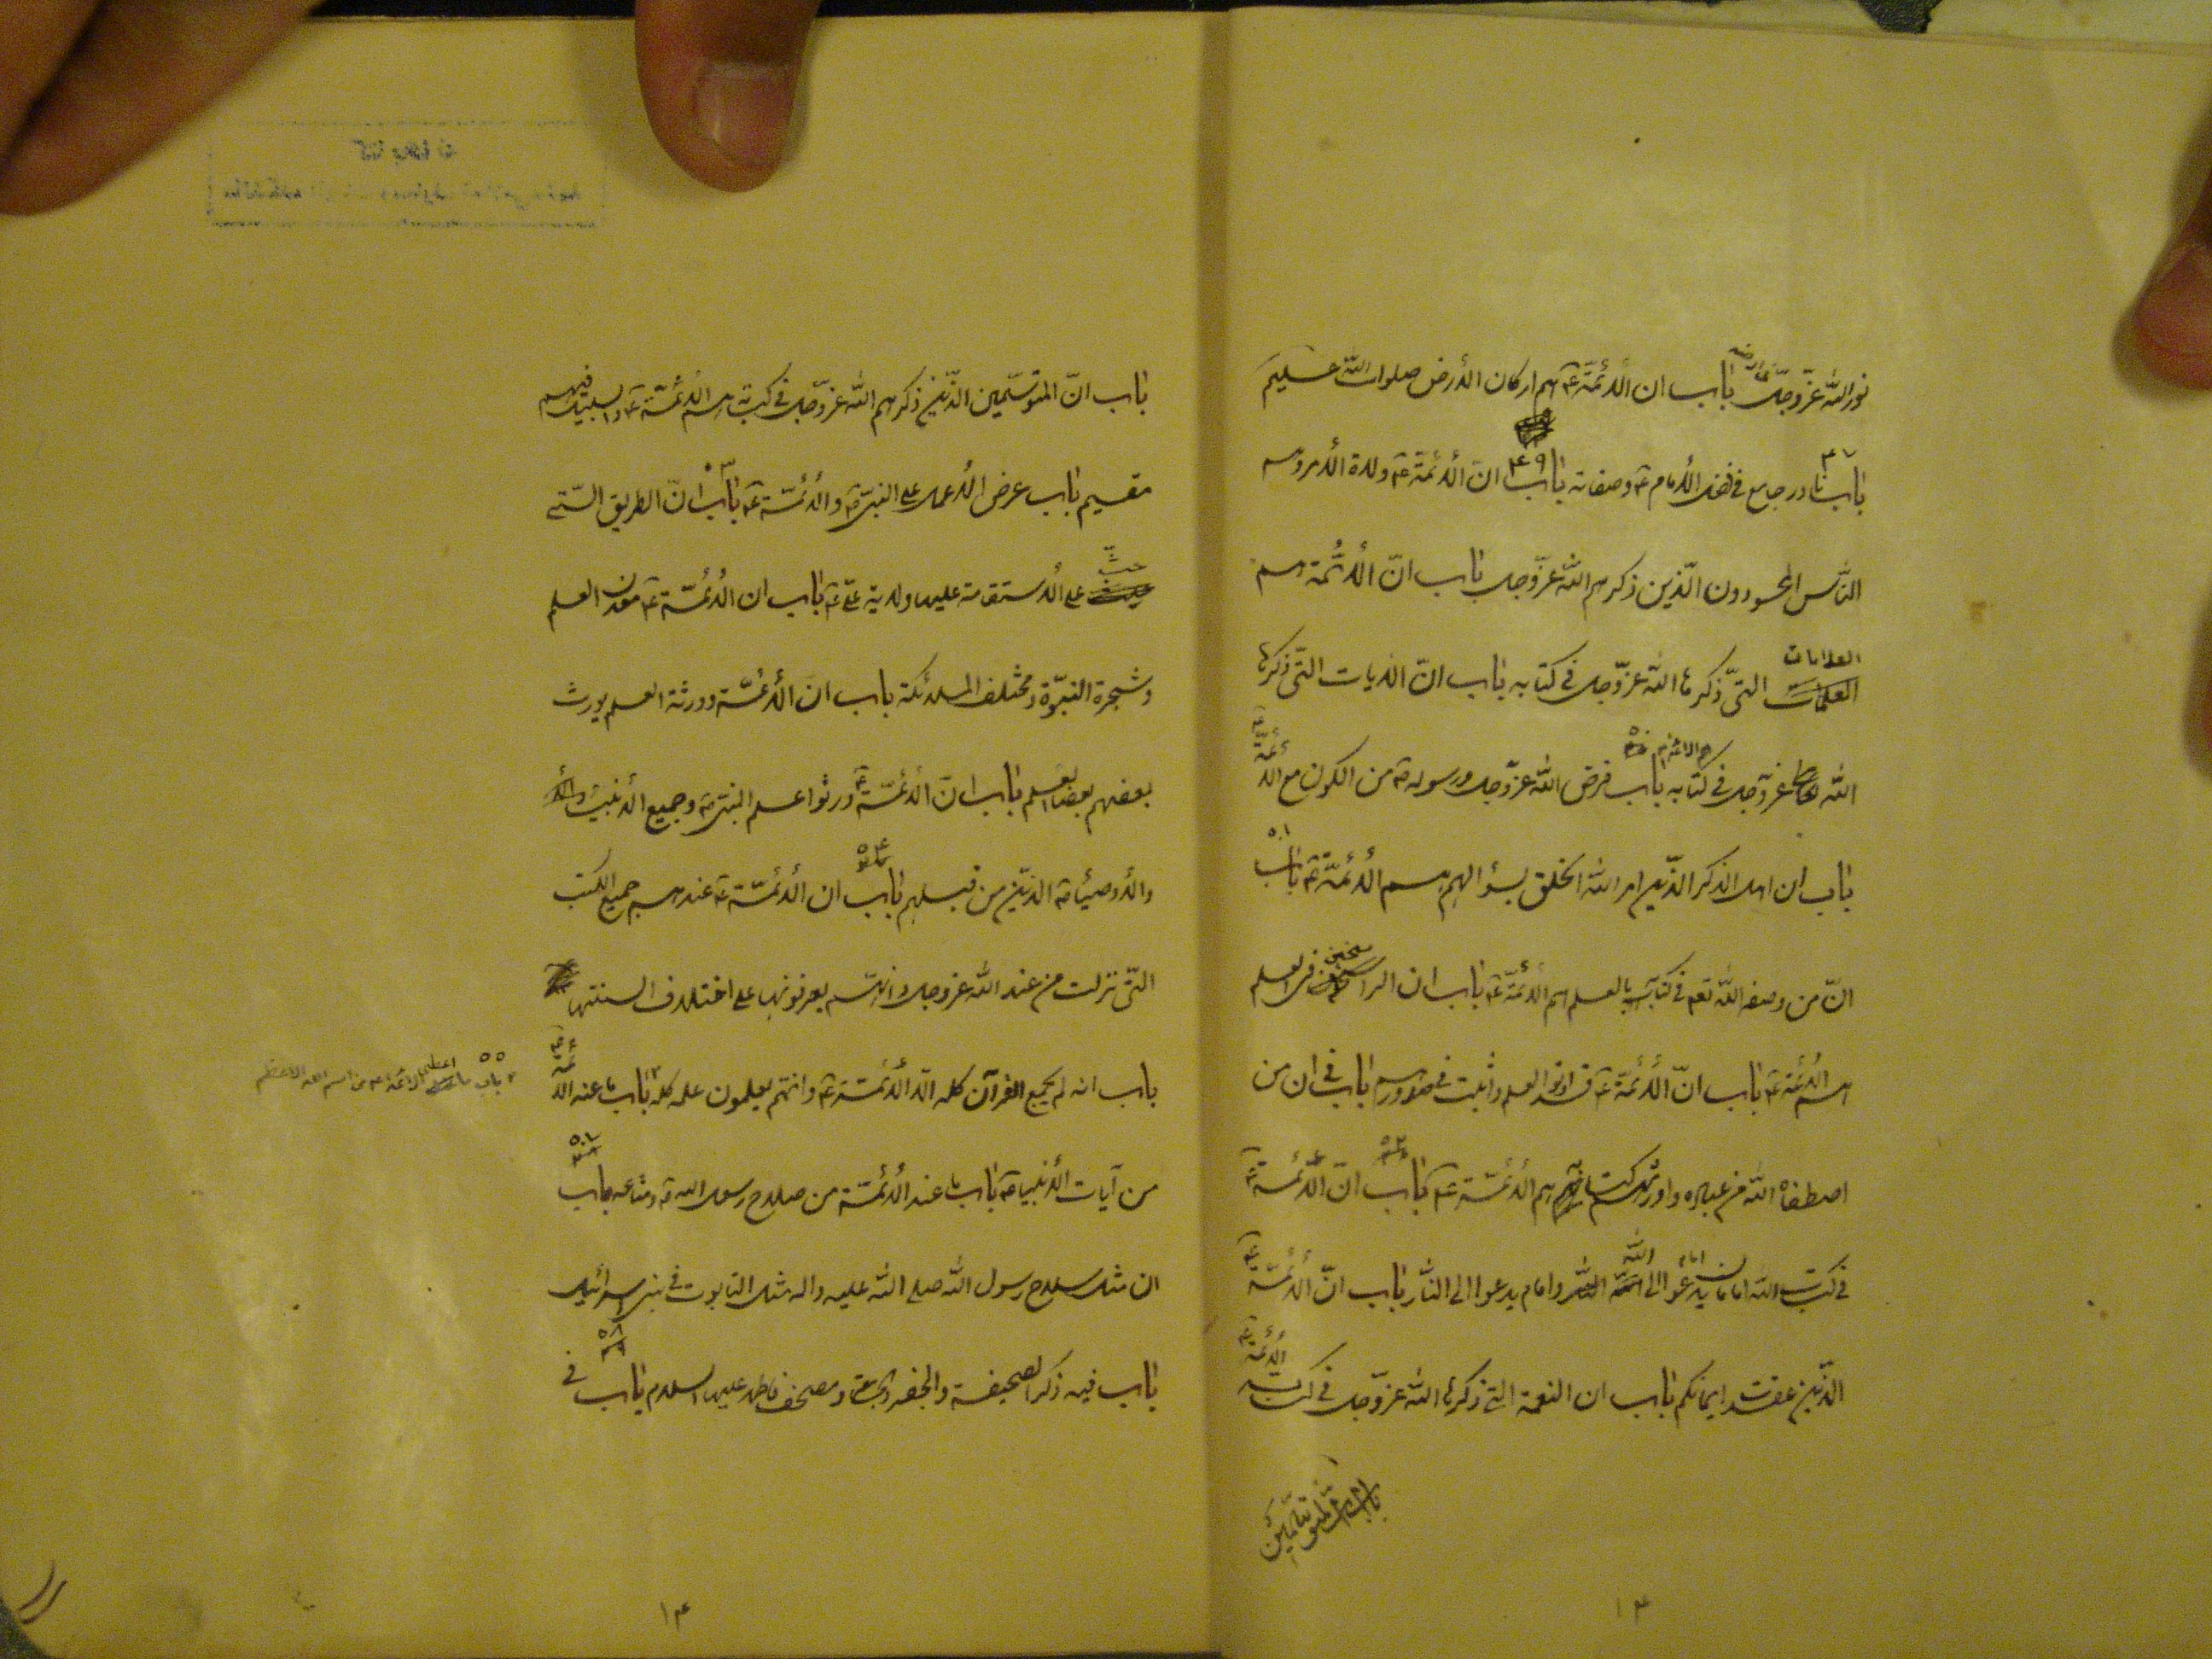 نور الله عزّ وجلّ باب ان الأئمّة ع هم اركان الأرض صلوات الله عليهم
باب نادر جامع في فضل الأمام ع وصفاته باب ٤٩ انّ الأئمّة ع ولاة الأمر وهم
النّاس المحسودون الّذين ذكرهم الله عزّ وجل باب انّ الأئمّة هم
العلامات
التّي ذكرها الله عزّ وجل في كتابه باب انّ الايات التّي ذكرها
الله عزّ وجل في كتابه باب فرض الله عزّ وجل ورسوله ص من الكون مع الأئمّة ع
٥١
باب ان اهل الذكر الّذين امر الله الخلق بسؤالهم هم الأئمّة ع باب
انّ من وصفه الله تعم في كتابه بالعلم هم الأئمّة ع باب ان الراسخين في العلم
هم الأئمّة ع باب انّ الأئمّة ع قد اوتوا العلم واثبت في صدورهم باب في ان من
اصطفاه الله من عباده واورثهم كتابه هم الأئمّة ع باب انّ الأئمّة ع
في كتاب الله امامان امام يدعوا الى الله وامام يدعوا الى النّار باب انّ الأئمّة ع
الّذين عقدت ايمانكم باب ان النعمة التي ذكرها الله عزّ وجل في كتابه الأئمّة ع
باب ان المتوسّمين
١٣
باب انّ المتوسّمين الّذين ذكرهم الله عزّ وجل في كتابه هم الأئمّة ع والسبيل فيهم
مقيم باب عرض الأعمال على النبيّ ص والأئمّة ع باب انّ الطريق الّتي
حثّ على الأستقامة عليها ولاية عليّ ع باب ان الأئمّة ع معدن العلم
وشجرة النبوّة ومختلف الملائكة باب انّ الأئمّة ورثة العلم يورث
بعضهم بعضا العلم باب انّ الأئمّة ع ورثوا علم النبيّ ص وجميع الأنبياء
والأوصياء الذّين من قبلهم باب ان الأئمّة ع عندهم جميع الكتب
التّي نزلت من عند الله عزّ وجل وانّهم يعرفونها على اختلاف السنتها
باب انه لم يجمع القرآن كله الّا الأئمّة ع وانّهم يعلمون علمه كله باب ما عند الأئمّة ع
٥٥ باب ما اعطى الائمة ع من اسم الله الاعظم
من آيات الأنبياء ع باب ما عند الأئمّة من سلاح رسول الله ص ومتاعه باب
ان مثل سلاح رسول الله صلى الله عليه واله مثل التابوت في بني اسرائيل
٥٨
باب فيه ذكر الصحيفة والجفر والجامعة ومصحف فاطمة عليها السلام باب في
١٤